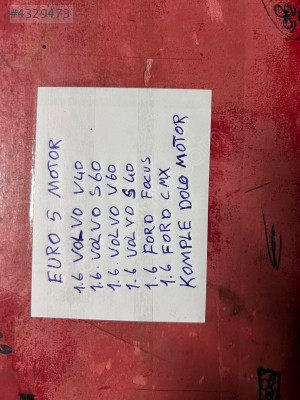 #4329473
EURO 5 MOTOR
1.6 VOLVO V40
1.6. VOLVO S60
1.6. VOLVO V60
1.6 VOLVO S40
1.6 FORD FOCUS
1.6 FORD CMX
KOMPLE DOLO MOTOR